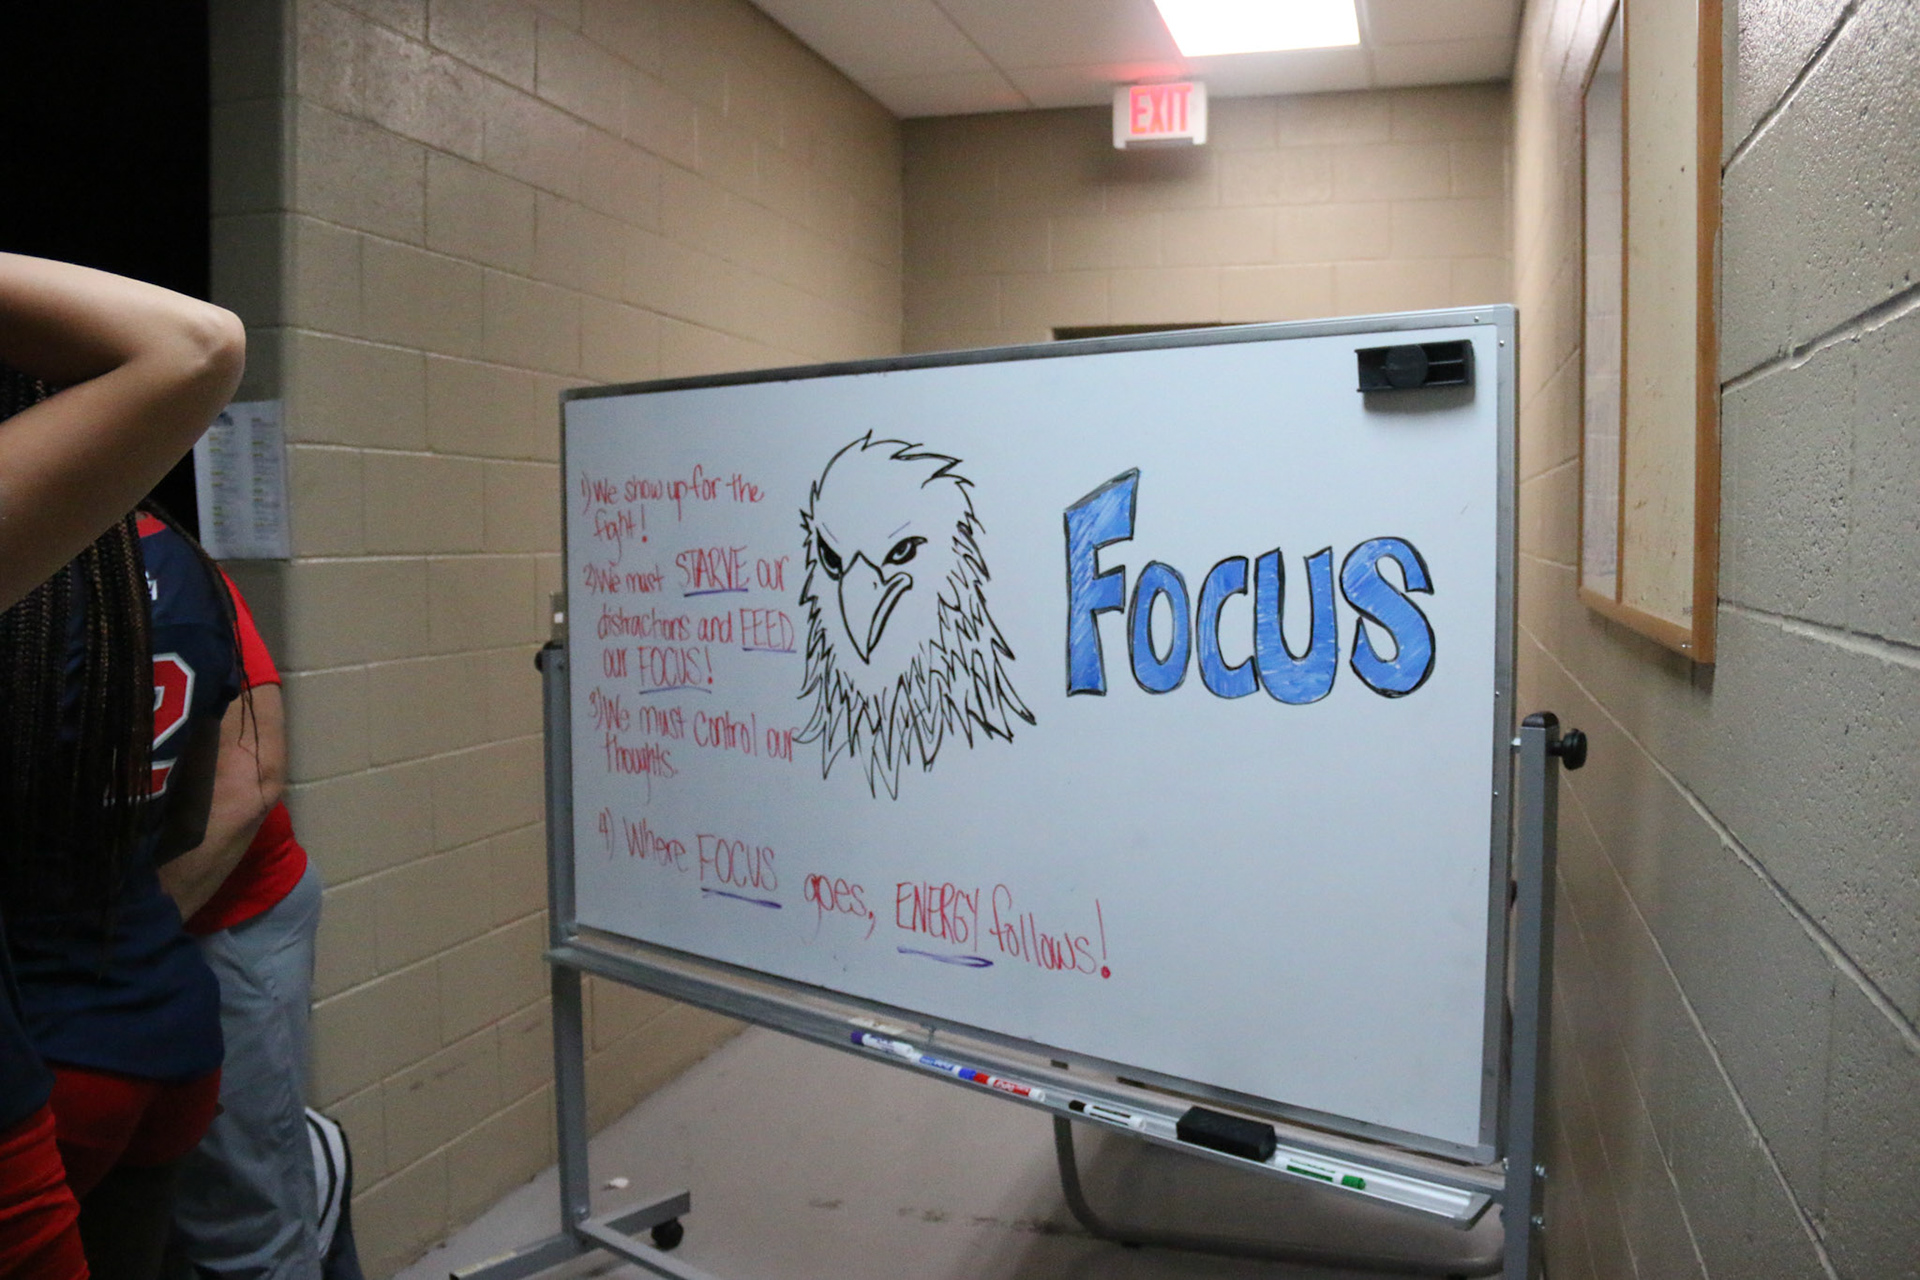 EXIT
1) We show up for the
fight!
2) We must STARVE our
distractions and FEED
our FOCUS!
3) We must control our
thoughts.
4) Where FOCUS goes, ENERGY follows!
FOCUS
2